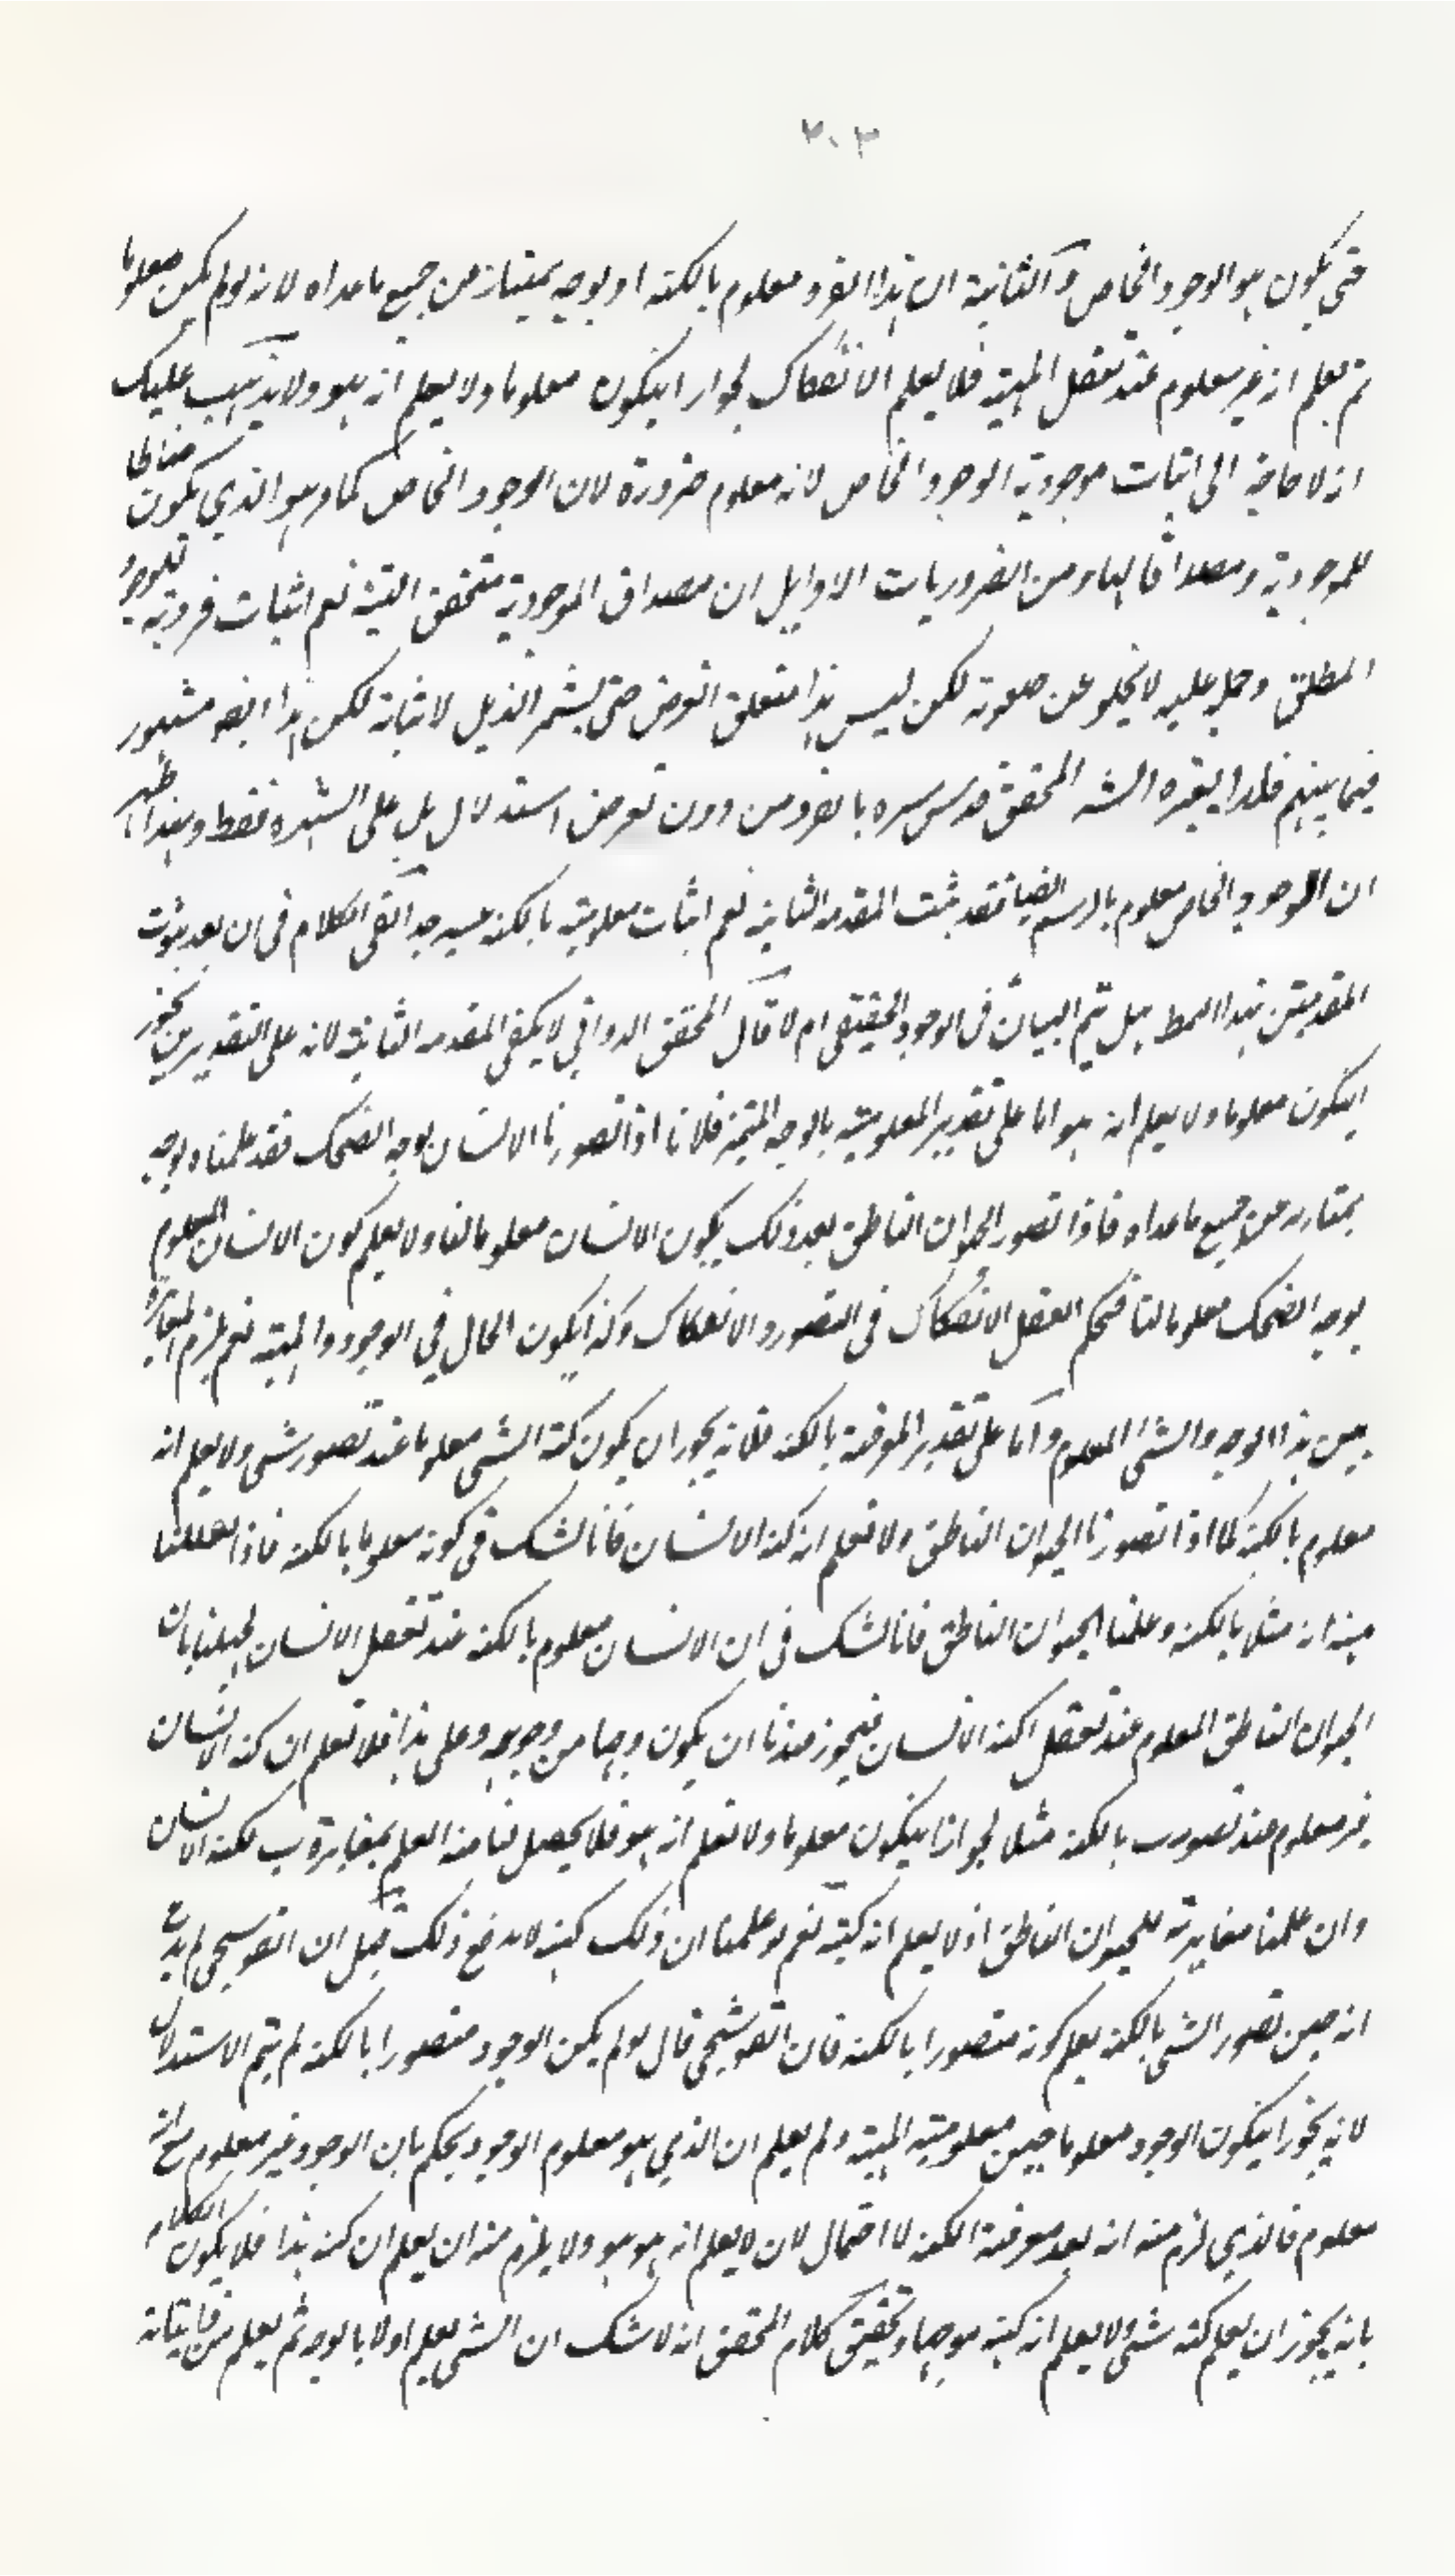 ٣٠٣
حتى يكون هو الوجود الخاص والثانية ان هذا الفرد معلوم بالكنه او بوجه يمتاز من جميع ماعداه لانه لو لم يكن معلوما
ثم يعلم انه غير معلوم عند تعقل المهية فلا يعلم الانفكاك لجواز ان يكون معلوما ولا يعلم انه هو ولا يذهب عليك
انه لا حاجة الى اثبات موجودية الوجود الخاص لانه معلوم ضرورة لان الوجود الخاص كما مر هو الذي يكون مناطا
للموجودية ومصداقا لها ومن الضروريات الاوايل ان مصداق الموجودية متحقق البتة نعم اثبات فرديته للوجود
المطلق وحمله عليه لا يخلو عن صعوبة لكن ليس هذا متعلق الغرض حتى يشمر الذيل لاثباته لكن هذا ايضا مشهور
فيما بينهم فلذا يعبره الشه المحقق قدس سره بالفرد من دون تعرض استدلال بل على الشهرة فقط وبهذا ظهر
ان الوجود الخاص معلوم بالرسم ايضا فقد ثبت المقدمة الثانية نعم اثبات معلوميته بالكنه عسير جدا بقى الكلام فى ان بعد ثبوت
المقدمتين بهذا النمط هل يتم البيان فى الوجود الحقيقى ام لا قال المحقق الدواني لا يكفى المقدمة الثانية لانه على التقديرين يجوز
ان يكون معلوما ولا يعلم انه هو اما على تقدير المعلومية بالوجه المتميز فلانا اذا تصورنا الانسان بوجه الضحك فقد علمناه بوجه
يمتاز به عن جميع ماعداه فاذا تصور الحيوان الناطق بعد ذلك يكون الانسان معلوما لنا ولا يعلم كون الانسان المعلوم
بوجه الضحك معلوما لنا فيحكم العقل الانفكاك فى التصور والانفكاك وكذا يكون الحال في الوجود والمهية نعم يلزم المغايرة
بين هذا الوجه والشئ المعلوم واما على تقدير المعرفة بالكنه فلانه يجوز ان يكون كنه الشئ معلوما عند تصور شئ ولا يعلم انه
معلوم بالكنه كما اذا تصورنا الحيوان الناطق ولا نعلم انه كنه الانسان فانا نشك فى كونه معلوما بالكنه فاذا تعقلنا
منه انه مثلا بالكنه وعلمنا الحيوان الناطق فانا نشك فى ان الانسان معلوم بالكنه عند تعقل الانسان لجهلنا بان
الحيوان الناطق المعلوم عند تعقل اكنه الانسان فيجوز عندنا ان يكون وجها من وجوهه وعلى هذا فلا نعلم ان كنه الانسان
غير معلوم عند تصور ب بالكنه مثلا لجواز ان يكون معلوما ولا نعلم انه هو فلا يحصل لنا منه العلم بمغايرة ب لكنه الانسان
وان علمنا مغايرته للحيوان الناطق اذ لا يعلم انه كنهه نعم لو علمنا ان ذلك كنهه لاندفع ذلك قيل ان القوشجى لم يدع
انه حين تصور الشئ بالكنه يعلم كونه متصورا بالكنه فان القوشجى قال لو لم يكن الوجود متصورا بالكنه لم يتم الاستدلال
لانه يجوز ان يكون الوجود معلوما حين معلومية المهية ولم يعلم ان الذي هو معلوم الوجود يحكم بان الوجود غير معلوم مع انه
معلوم فالذي لزم منه انه بعد معرفة الكنه لا احتمال لان لا يعلم انه هو هو ولا يلزم منه ان يعلم ان كنه هذا فلا يكون الكلام
بانه يجوز ان يعلم كنه شئ ولا يعلم انه كنهه موجها وتحقيق كلام المحقق انه لا شك ان الشئ يعلم اولا بالوجه ثم يعلم من